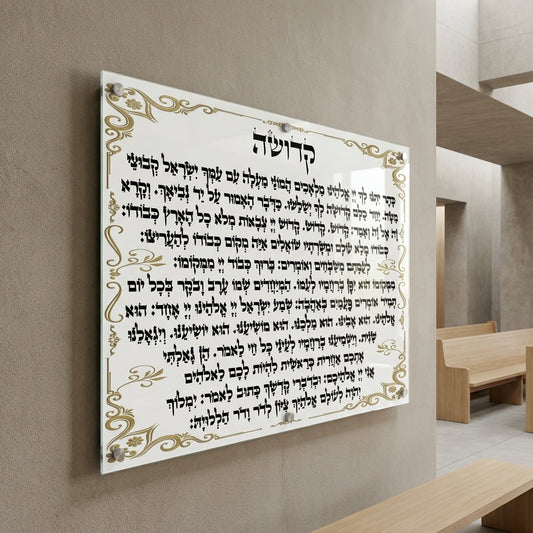 קדושה
כתר יתנו לך יי אלהינו מלאכים המוני מעלה עם עמך ישראל קבוצי
מטה. יחד כלם קדושה לך ישלשו. כדבר האמור על יד נביאך. וקרא
זה אל זה ואמר: קדוש. קדוש. קדוש יי צבאות מלא כל הארץ כבודו:
כבודו מלא עולם ומשרתיו שואלים איה מקום כבודו להעריצו:
לעמתם משבחים ואומרים: ברוך כבוד יי ממקומו:
ממקומו הוא יפן ברחמיו לעמו. המיחדים שמו ערב ובקר בכל יום
תמיד אומרים פעמים באהבה: שמע ישראל יי אלהינו יי אחד: הוא
אלהינו. הוא אבינו. הוא מלכנו. הוא מושיענו. הוא יושיענו. ויגאלנו
שנית. וישמיענו ברחמיו לעיני כל חי לאמר. הן גאלתי
אתכם אחרית כראשית להיות לכם לאלהים
אני יי אלהיכם: ובדברי קדשך כתוב לאמר: ימלוך
יהוה לעולם אלהיך ציון לדר ודר הללויה: